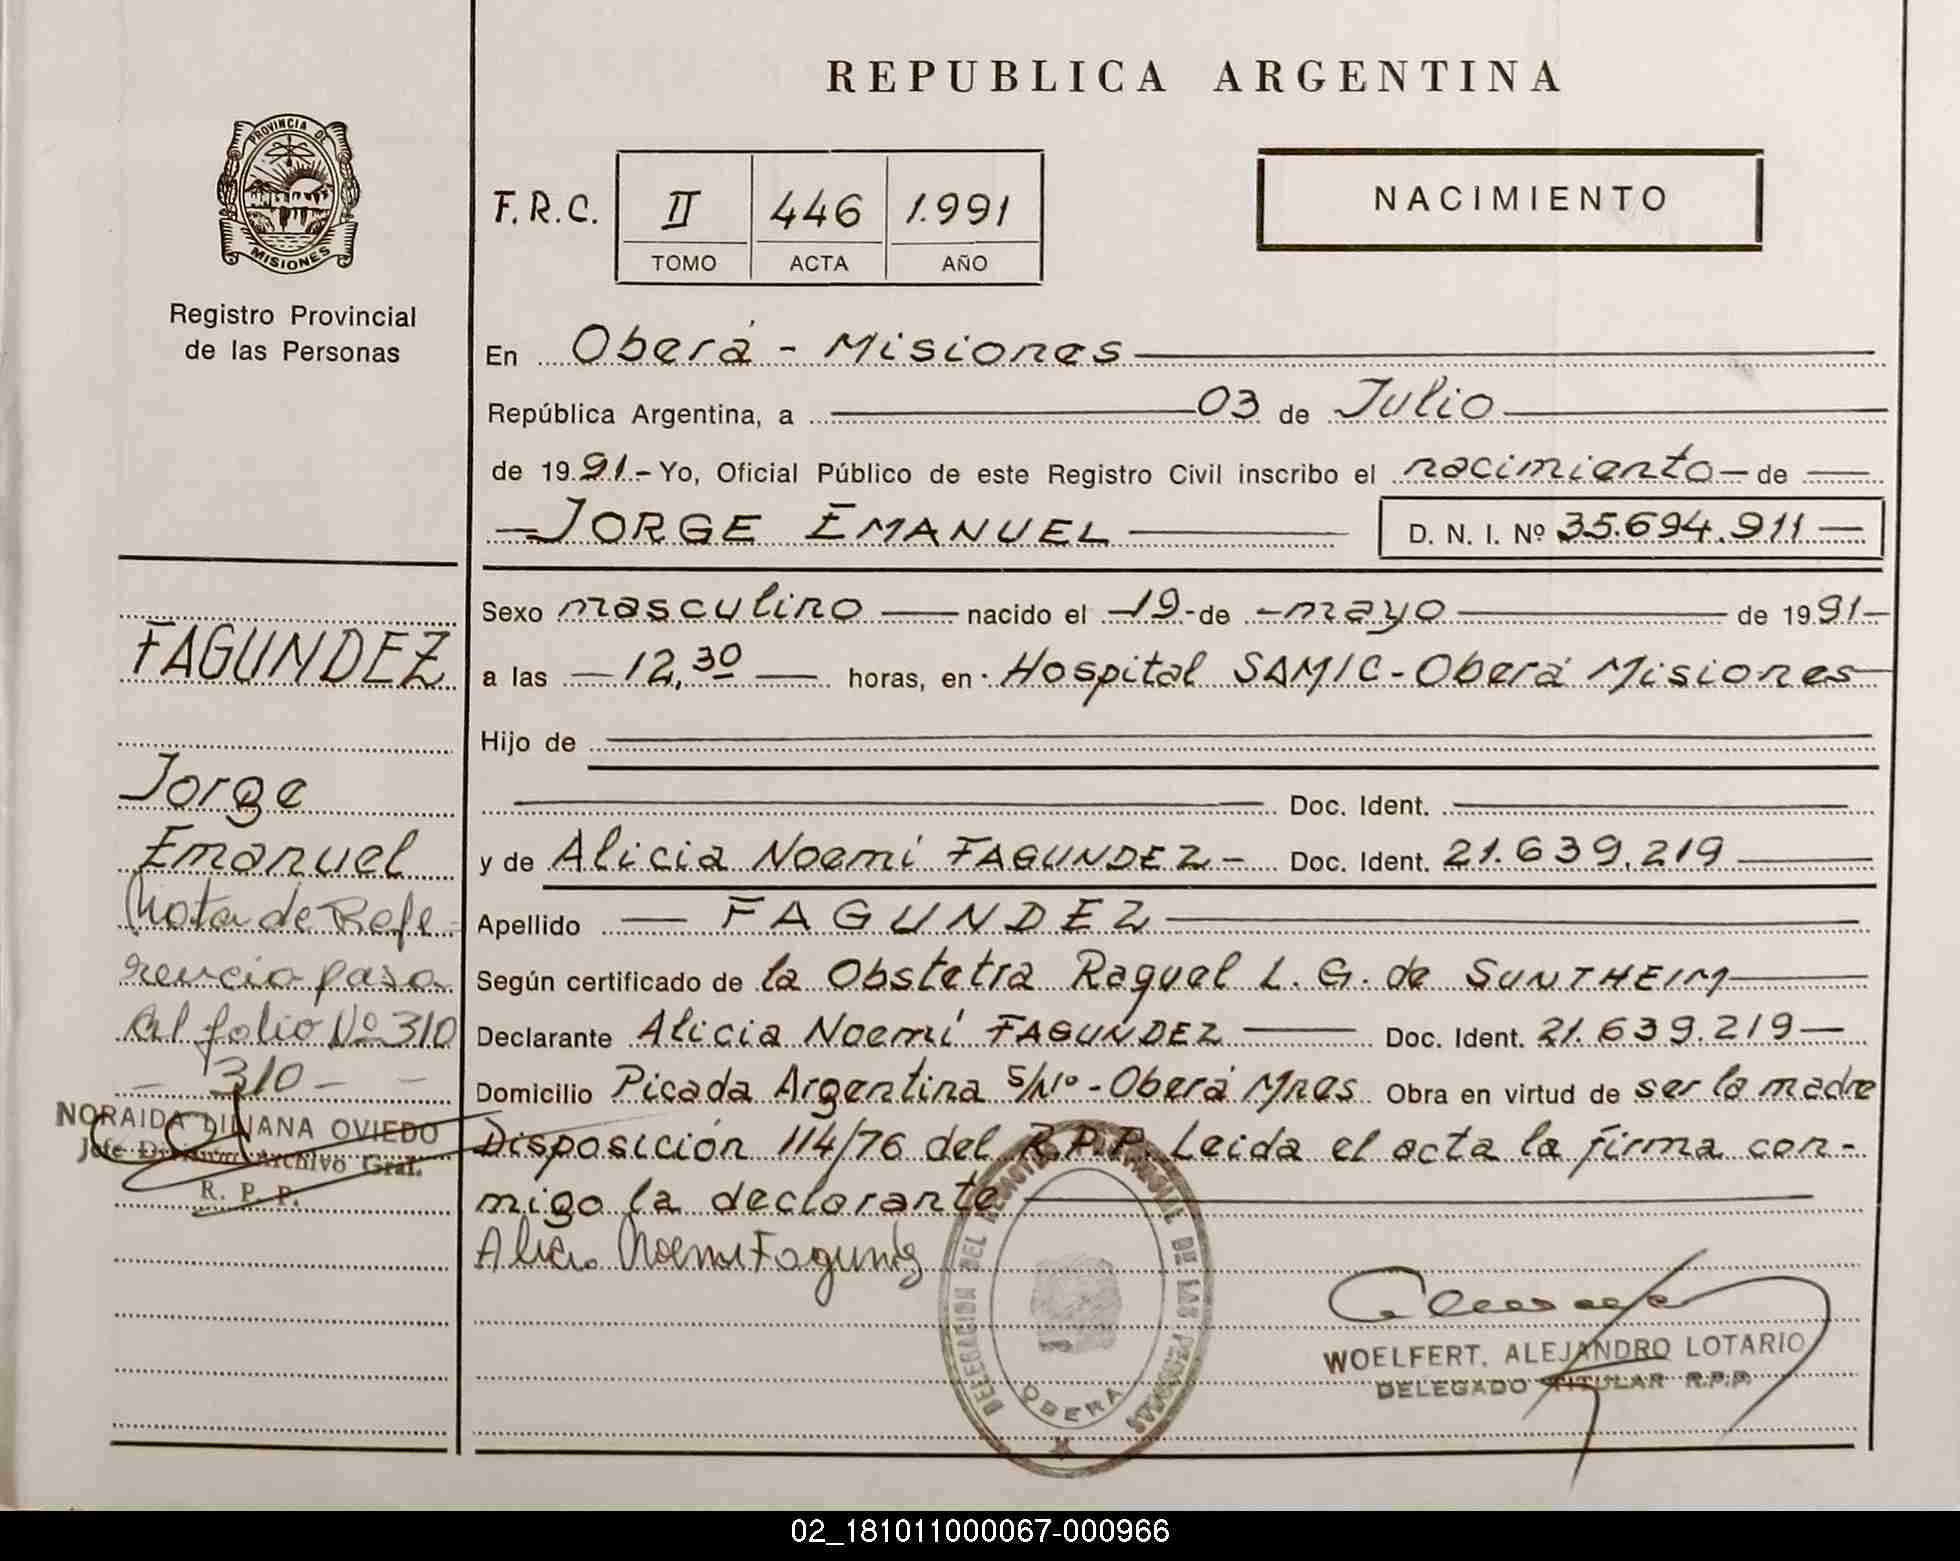 REPUBLICA ARGENTINA
PROVINCIA DE
MISIONES
Registro Provincial
de las Personas
F.R.C.
II 446 1.991
TOMO ACTA AÑO
NACIMIENTO
En Oberá - Misiones
República Argentina, a 03 de Julio
de 1991.- Yo, Oficial Público de este Registro Civil inscribo el nacimiento - de
JORGE EMANUEL D. N. I. Nº 35.694.911
Sexo masculino nacido el 19 de mayo de 1991
a las 12,30 horas, en Hospital SAMIC - Oberá Misiones
Hijo de
Doc. Ident.
y de Alicia Noemí FAGUNDEZ - Doc. Ident. 21.639.219
Apellido FAGUNDEZ
Según certificado de la Obstetra Raquel L. G. de SUNTHEIM
Declarante Alicia Noemí FAGUNDEZ Doc. Ident. 21.639.219
Domicilio Picada Argentina S/Nº - Oberá Mnes Obra en virtud de ser la madre
Disposición 114/76 del R.P.P. Leida el acta la firma con-
migo la declarante
FAGUNDEZ
Jorge
Emanuel
Nota de Refe-
rencia pasa
al folio Nº 310
- 310 -
NORAIDA LILIANA OVIEDO
Jefe División Archivo Gral.
R. P. P.
Alicia Noemi Fagundez
DELEGACION DEL REGISTRO PROVINCIAL DE LAS PERSONAS
OBERA
WOELFERT, ALEJANDRO LOTARIO
DELEGADO TITULAR R.P.P.
02_181011000067-000966